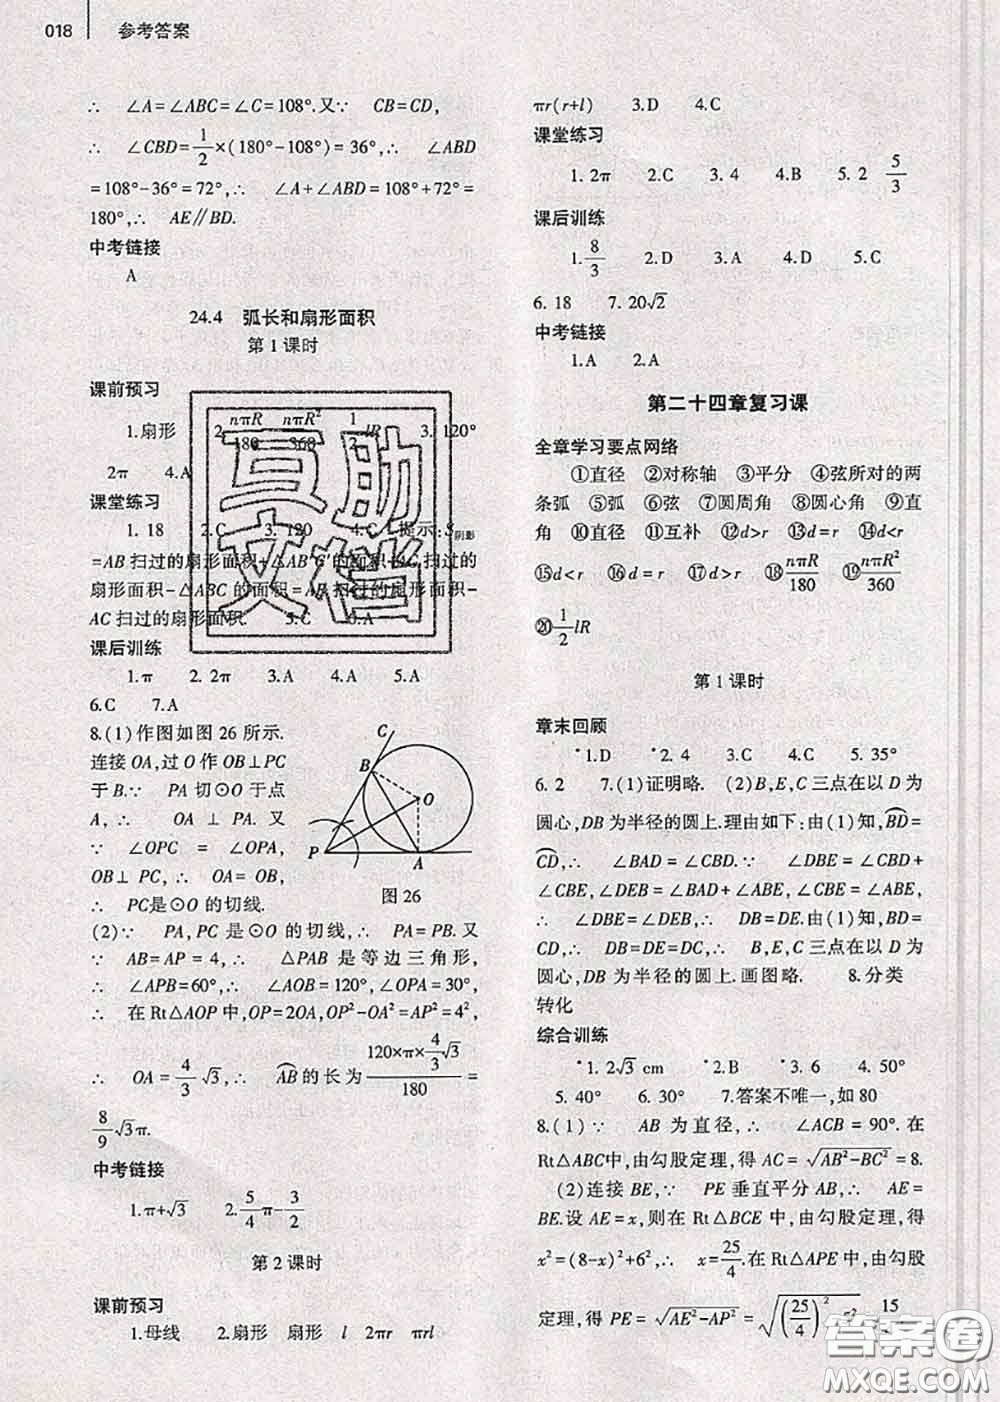 018 参考答案
∴ ∠A=∠ABC=∠C=108°.又∵ CB=CD,
∴ ∠CBD=1/2×(180°-108°)=36°,∴ ∠ABD
=108°-36°=72°,∴ ∠A+∠ABD=108°+72°=
180°,∴ AE∥BD.
中考链接
A
24.4 弧长和扇形面积
第1课时
课前预习
1.扇形 2.nπR/180 nπR²/360 1/2 lR 3.120°
2π 4.A
课堂练习
1.18 2.C 3.120 4.C [提示:S阴影
=AB扫过的扇形面积+△AB′C′的面积-AC扫过的
扇形面积-△ABC的面积=AB扫过的扇形面积-
AC扫过的扇形面积. 5.C 6.A
课后训练
1.π 2.2π 3.A 4.A 5.A
6.C 7.A
8.(1)作图如图26所示.
连接OA,过O作OB⊥PC
于B.∵ PA切⊙O于点
A,∴ OA⊥PA.又
∵ ∠OPC=∠OPA,
OB⊥PC,∴ OA=OB,
∴ PC是⊙O的切线.
C
B
O
P
A
图26
(2)∵ PA,PC是⊙O的切线,∴ PA=PB.又
∵ AB=AP=4,∴ △PAB是等边三角形,
∴ ∠APB=60°,∴ ∠AOB=120°,∠OPA=30°,
∴ 在Rt△AOP中,OP=2OA,OP²-OA²=AP²=4²,
∴ OA=4/3√3,∴ AB⌒的长为(120×π×4/3√3)/180=
8/9√3π.
中考链接
1.π+√3 2.5/4π-3/2
第2课时
课前预习
1.母线 2.扇形 扇形 l 2πr πrl
πr(r+l) 3.D 4.C
课堂练习
1.2π 2.C 3.4 4.B 5.2 5/3
课后训练
1.8/3 2.D 3.A 4.D 5.C
6.18 7.20√2
中考链接
1.A 2.A
第二十四章复习课
全章学习要点网络
①直径 ②对称轴 ③平分 ④弦所对的两
条弧 ⑤弧 ⑥弦 ⑦圆周角 ⑧圆心角 ⑨直
角 ⑩直径 ⑪互补 ⑫d>r ⑬d=r ⑭d<r
⑮d<r ⑯d=r ⑰d>r ⑱nπR/180 ⑲nπR²/360
⑳1/2 lR
第1课时
章末回顾
•1.D •2.4 3.C 4.C 5.35°
6.2 7.(1)证明略. (2)B,E,C三点在以D为
圆心,DB为半径的圆上.理由如下:由(1)知,BD⌒=
CD⌒,∴ ∠BAD=∠CBD.∵ ∠DBE=∠CBD+
∠CBE,∠DEB=∠BAD+∠ABE,∠CBE=∠ABE,
∴ ∠DBE=∠DEB,∴ DB=DE.由(1)知,BD=
CD,∴ DB=DE=DC,∴ B,E,C三点在以D为
圆心,DB为半径的圆上.画图略. 8.分类
转化
综合训练
•1.2√3 cm •2.B •3.6 4.50°
5.40° 6.30° 7.答案不唯一,如80
8.(1)∵ AB为直径,∴ ∠ACB=90°.在
Rt△ABC中,由勾股定理,得AC=√(AB²-BC²)=8.
(2)连接BE,∵ PE垂直平分AB,∴ AE=
BE.设AE=x,则在Rt△BCE中,由勾股定理,得
x²=(8-x)²+6²,∴ x=25/4.在Rt△APE中,由勾股
定理,得PE=√(AE²-AP²)=√((25/4)²-5²) 15
互助
文档
答案圈
MXQE.COM